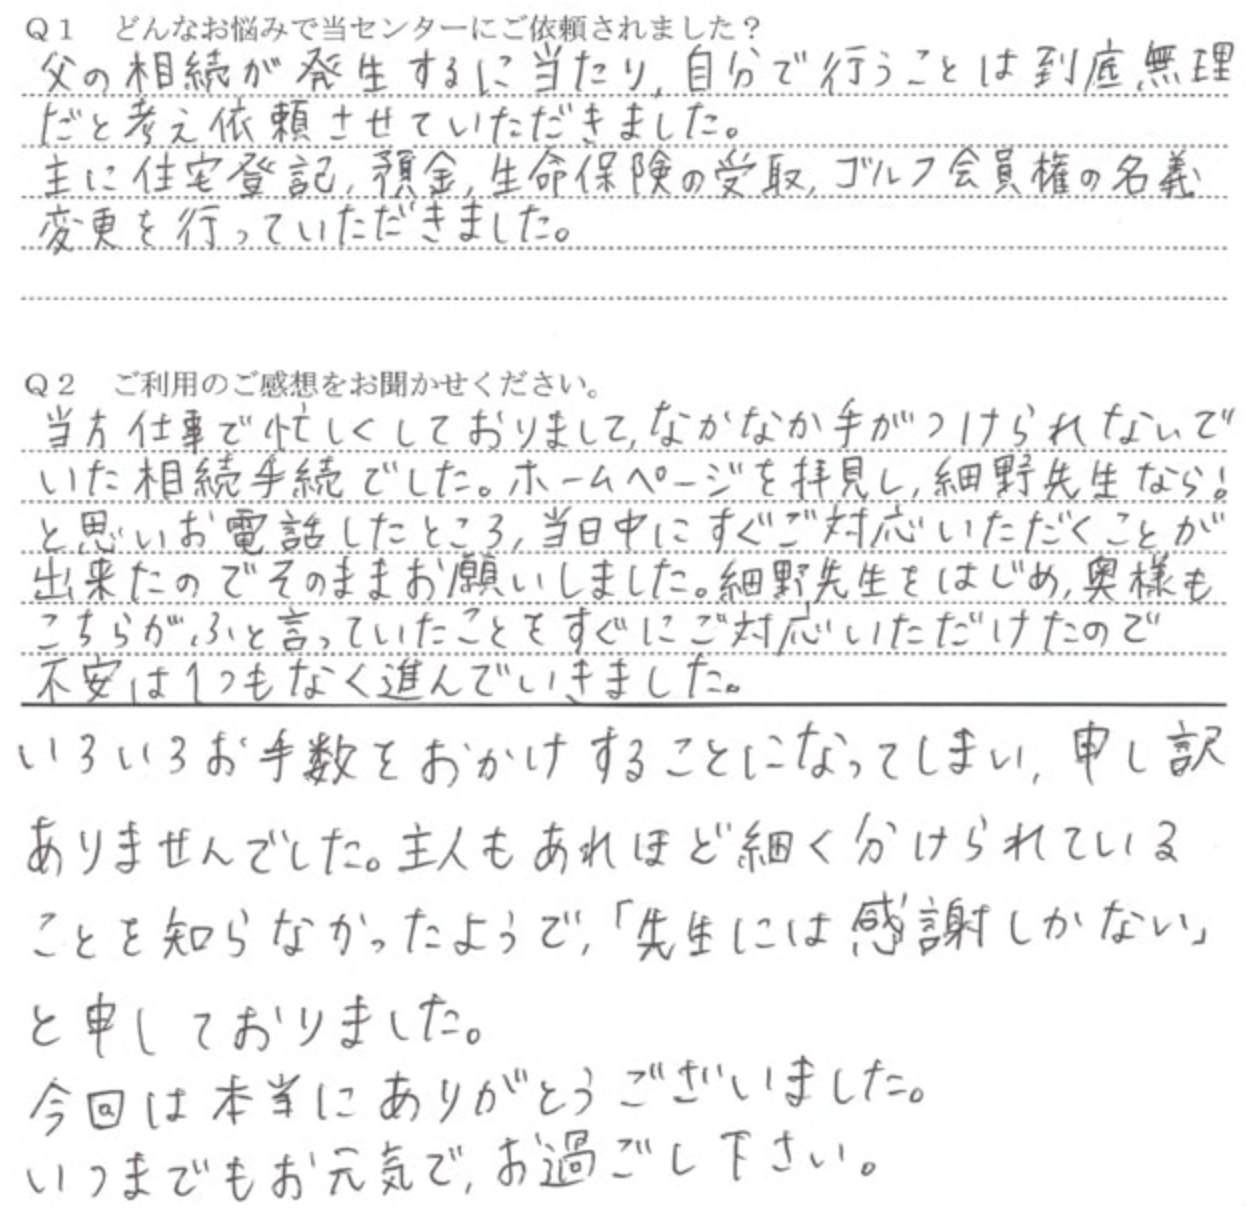 Q1 どんなお悩みで当センターにご依頼されました？
父の相続が発生するに当たり,自分で行うことは到底無理
だと考え依頼させていただきました。
主に住宅登記,預金,生命保険の受取,ゴルフ会員権の名義
変更を行っていただきました。
Q2 ご利用のご感想をお聞かせください。
当方仕事で忙しくしておりまして,なかなか手がつけられないで
いた相続手続でした。ホームページを拝見し,細野先生なら!
と思いお電話したところ,当日中にすぐご対応いただくことが
出来たのでそのままお願いしました。細野先生をはじめ,奥様も
こちらがふと言っていたことをすぐにご対応いただけたので
不安は1つもなく進んでいきました。
いろいろお手数をおかけすることになってしまい,申し訳
ありませんでした。主人もあれほど細く分けられている
ことを知らなかったようで,「先生には感謝しかない」
と申しておりました。
今回は本当にありがとうございました。
いつまでもお元気で,お過ごし下さい。